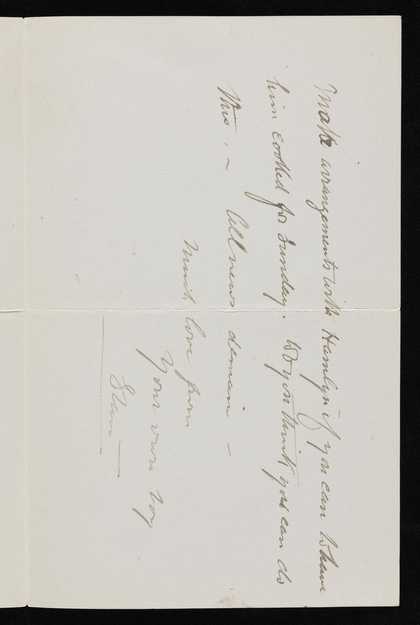 Make arrangements with Hamlyn if you can to have
him cooked for Sunday. Do you think you can do
this. — All news demain —
Much love from
Your own boy
Stan